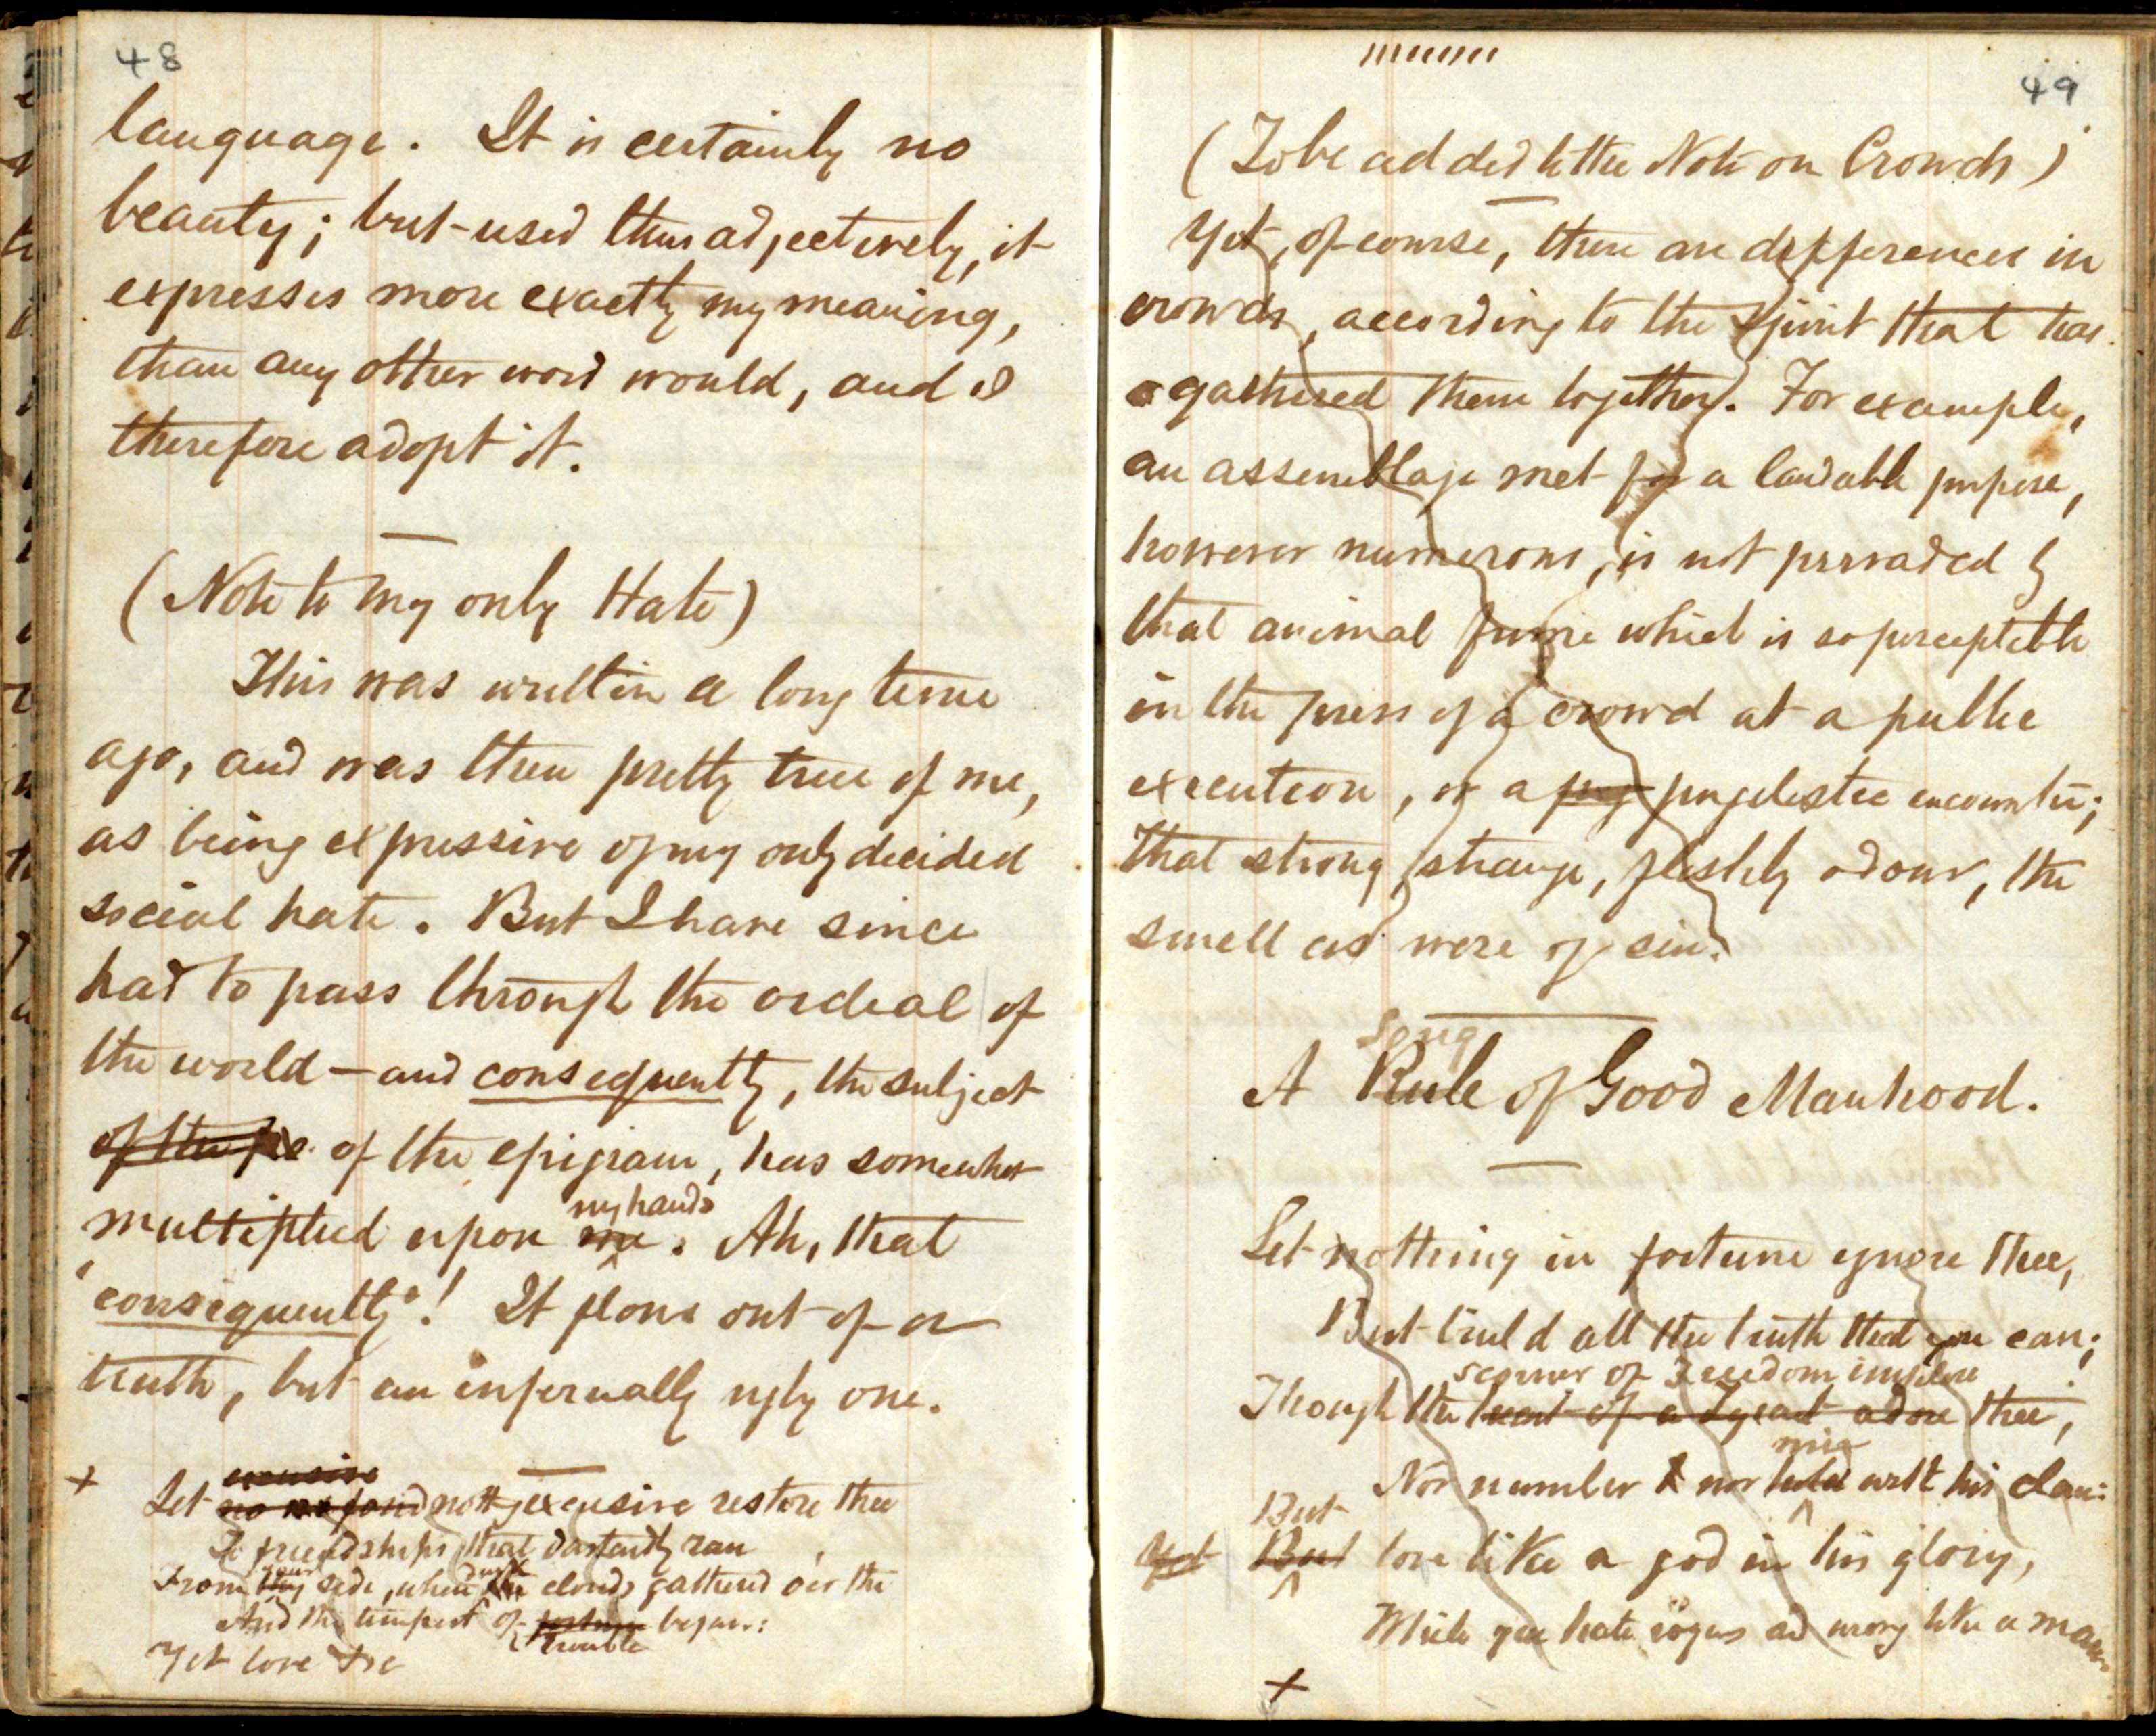 48
language. It is certainly no
beauty; but used thus adjectively, it
expresses more exactly my meaning,
than any other word would, and I
therefore adopt it.
(Note to My only Hate)
This was written a long time
ago, and was then pretty true of me,
as being expressive of my only decided
social hate. But I have since
had to pass through the ordeal of
the world — and consequently, the subject
of the of the epigram, has somewhat
my hands
multiplied upon me. Ah, that
'consequently'! It flows out of a
truth, but an infernally ugly one.
excusive
+ Let no fond not excusive restore thee
To friendships that dastardly ran
your
From thy side, when the clouds gathered o'er thee
And the tempest of fortune began:
trouble
Yet love &c
49
(To be added to the Note on Crowds)
Yet, of course, there are differences in
crowds, according to the spirit that has
gathered them together. For example,
an assemblage met for a laudable purpose,
however numerous, is not pervaded by
that animal fume which is so perceptible
in the press of a crowd at a public
execution, or a pug pugilistic encounter;
that strong, strange, fleshly odour, the
smell as were of sin.
Song
A Rule of Good Manhood.
Let nothing in fortune ignore thee,
But build all the truth that you can;
scorner of Freedom implore
Though the heart of a dyeart adore thee,
mix
Nor number nor hold with his clan:
But
Yet But love like a god in his glory,
While you hate rogues and wrong like a man.
+